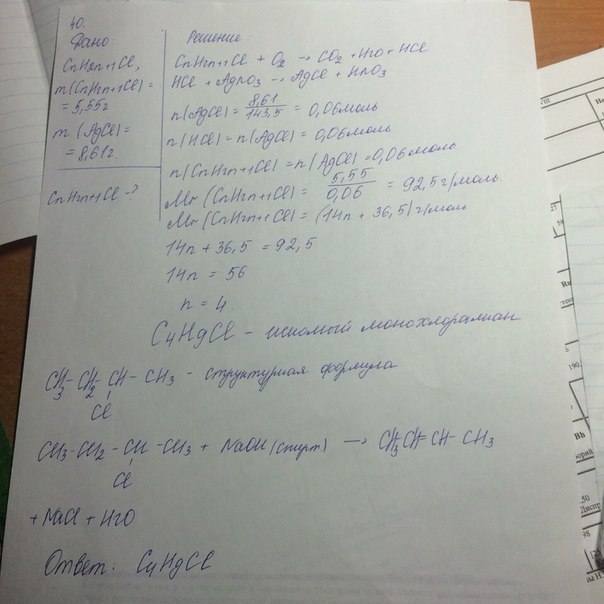 40.
Дано:
CnH2n+1Cl,
m(CnH2n+1Cl) =
= 5,55г
m (AgCl) =
= 8,61г
CnH2n+1Cl - ?
Решение:
CnH2n+1Cl + O2 → CO2 + H2O + HCl
HCl + AgNO3 → AgCl + HNO3
n(AgCl) = 8,61/143,5 = 0,06 моль
n(HCl) = n(AgCl) = 0,06 моль
n(CnH2n+1Cl) = n(AgCl) = 0,06 моль
Mr(CnH2n+1Cl) = 5,55/0,06 = 92,5 г/моль.
Mr(CnH2n+1Cl) = (14n + 36,5) г/моль
14n + 36,5 = 92,5
14n = 56
n = 4
C4H9Cl - искомый монохлоралкан
CH3 - CH2 - CH - CH3 - структурная формула
Cl
CH3 - CH2 - CH - CH3 + NaOH (спирт) → CH3 CH = CH - CH3
Cl
+ NaCl + H2O
Ответ: C4H9Cl
Ru
190
Bh